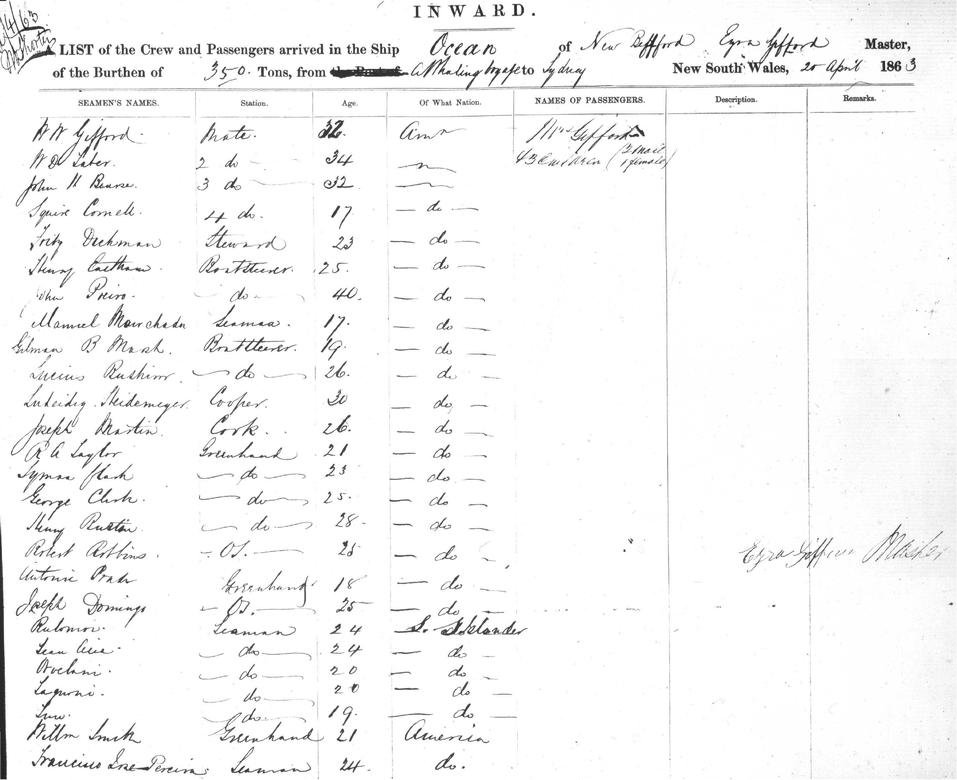 INWARD.
A LIST of the Crew and Passengers arrived in the Ship Ocean of New Bedford Ezra Gifford Master,
of the Burthen of 350 Tons, from the Port of A Whaling voyage to Sydney New South Wales, 20 April 1863
SEAMEN'S NAMES. Station. Age. Of What Nation. NAMES OF PASSENGERS. Description. Remarks.
W W Gifford. Mate. 32. Amn Mrs Gifford
W D Taber. 2 do 34 3 Children (2 male 1 female)
John H Bearse. 3 do 32
Squire Cornell. 4 do. 17 — do —
Fritz Deckman Steward 23 — do —
Henry Eastham. Boatsteerer. 25. — do —
John — do — 40. — do —
Manuel Seaman. 17. — do —
Gilman B Mash. Boatsteerer. 19. — do —
Lucius — do — 26. — do —
Heidemeyer. Cooper. 30 — do —
Joseph Martin. Cook. 26. — do —
R A Taylor Greenhand 21 — do —
Lyman — do — 23 — do —
George Clark. — do — 25. — do —
Henry — do — 28. — do —
Robert Robbins. — OS. — 25 — do —
Ezra Gifford Master
Antonie Greenhand 18 — do —
Joseph Domingo — OS. — 25 — do —
Seaman 24 S. S. Islander
— do — 24 — do —
— do — 20 — do —
— do — 20 — do —
— do — 19. — do —
Willm Smith Greenhand 21 America
Francisco Jose Pereira Seaman 24. do.